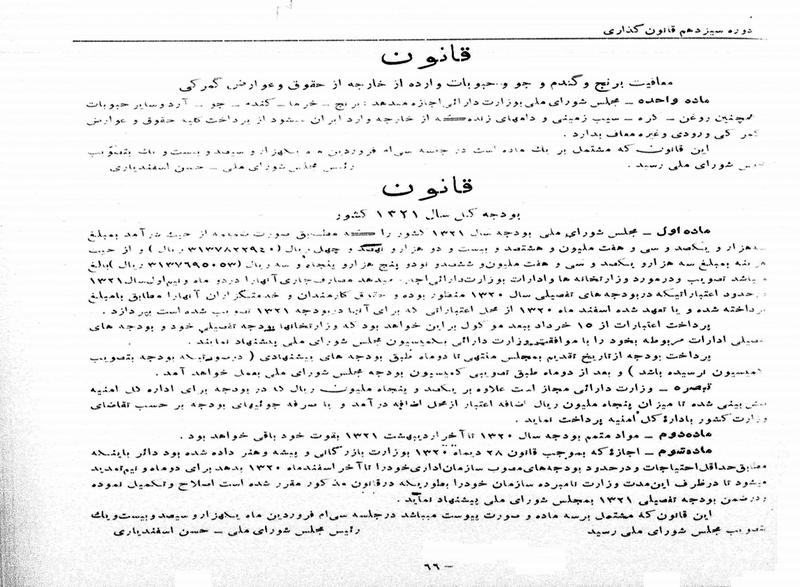 دوره سیزدهم قانون گذاری
قانون
معافیت برنج و گندم و جو و حبوبات وارده از خارجه از حقوق و عوارض گمرکی
ماده واحده – مجلس شورای ملی بوزارت دارائی اجازه میدهد : برنج – خرما – گندم – جو – آرد و سایر حبوبات
همچنین روغن – کره – سیب زمینی و دامهای زنده که از خارجه وارد ایران میشود از پرداخت کلیه حقوق و عوارض
گمرکی و ورودی و غیره معاف بدارد .
این قانون که مشتمل بر یک ماده است در جلسه سی‌ام فروردین ماه یکهزار و سیصد و بیست و یک بتصویب
مجلس شورای ملی رسید . رئیس مجلس شورای ملی – حسن اسفندیاری
قانون
بودجه کل سال ۱۳۲۱ کشور
ماده اول – مجلس شورای ملی بودجه سال ۱۳۲۱ کشور را که مطابق صورت ضمیمه از حیث درآمد بمبلغ
سه هزار و یکصد و سی و هفت ملیون و هشتصد و بیست و دو هزار و نهصد و چهل ریال (۳۱۳۷۸۲۲۹۴۰ ریال) و از حیث
هزینه بمبلغ سه هزار و یکصد و سی و هفت ملیون و ششصد و نود و پنج هزار و پنجاه و سه ریال (۳۱۳۷۶۹۵۰۵۳ ریال) بالغ
میباشد تصویب و در مورد وزارتخانه ها و ادارات بوزارت دارائی اجازه میدهد مصارف جاری آنها را در دو ماه و نیم اول سال ۱۳۲۱
در حدود اعتباراتیکه در بودجه های تفصیلی سال ۱۳۲۰ منظور بوده و حقوق کارمندان و خدمتگزاران آنها را مطابق با مبلغ
پرداخته شده و یا تعهد شده اسفند ماه ۱۳۲۰ از محل اعتباراتی که برای آنها در بودجه ۱۳۲۱ تصویب شده است بپردازد .
پرداخت اعتبارات از ۱۵ خرداد ببعد موکول بر این خواهد بود که وزارتخانها بودجه تفصیلی خود و بودجه های
تفصیلی ادارات مربوطه بخود را با موافقت وزارت دارائی بکمیسیون بودجه مجلس شورای ملی پیشنهاد نمایند .
پرداخت بودجه از تاریخ تقدیم بمجلس منتهی تا دوماه طبق بودجه های پیشنهادی ( درصورتیکه بودجه بتصویب
کمیسیون نرسیده باشد ) و بعد از دوماه طبق تصویب کمیسیون بودجه مجلس شورای ملی بعمل خواهد آمد .
تبصره – وزارت دارائی مجاز است علاوه بر یکصد و پنجاه ملیون ریال که در بودجه برای اداره کل امنیه
پیش بینی شده تا میزان پنجاه ملیون ریال اضافه اعتبار از محل اضافه درآمد و یا صرفه جوئیهای بودجه بر حسب تقاضای
وزارت کشور باداره کل امنیه پرداخت نماید .
ماده دوم – مواد متمم بودجه سال ۱۳۲۰ تا آخر اردیبهشت ۱۳۲۱ بقوت خود باقی خواهد بود .
ماده سوم – اجازه که بموجب قانون ۲۸ دیماه ۱۳۲۰ بوزارت بازرگانی و پیشه و هنر داده شده بود دائر باینکه
مطابق حداقل احتیاجات و در حدود بودجه های مصوب سازمان اداری خود را تا آخر اسفند ماه ۱۳۲۰ بدهد برای دو ماه و نیم تمدید
میشود تا در ظرف این مدت وزارت نامبرده سازمان خود را بطوریکه در قانون مذکور مقرر شده است اصلاح و تکمیل نموده
و در ضمن بودجه تفصیلی ۱۳۲۱ بمجلس شورای ملی پیشنهاد نماید .
این قانون که مشتمل بر سه ماده و صورت پیوست میباشد در جلسه سی‌ام فروردین ماه یکهزار و سیصد و بیست و یک
بتصویب مجلس شورای ملی رسید رئیس مجلس شورای ملی – حسن اسفندیاری
– ۶۶